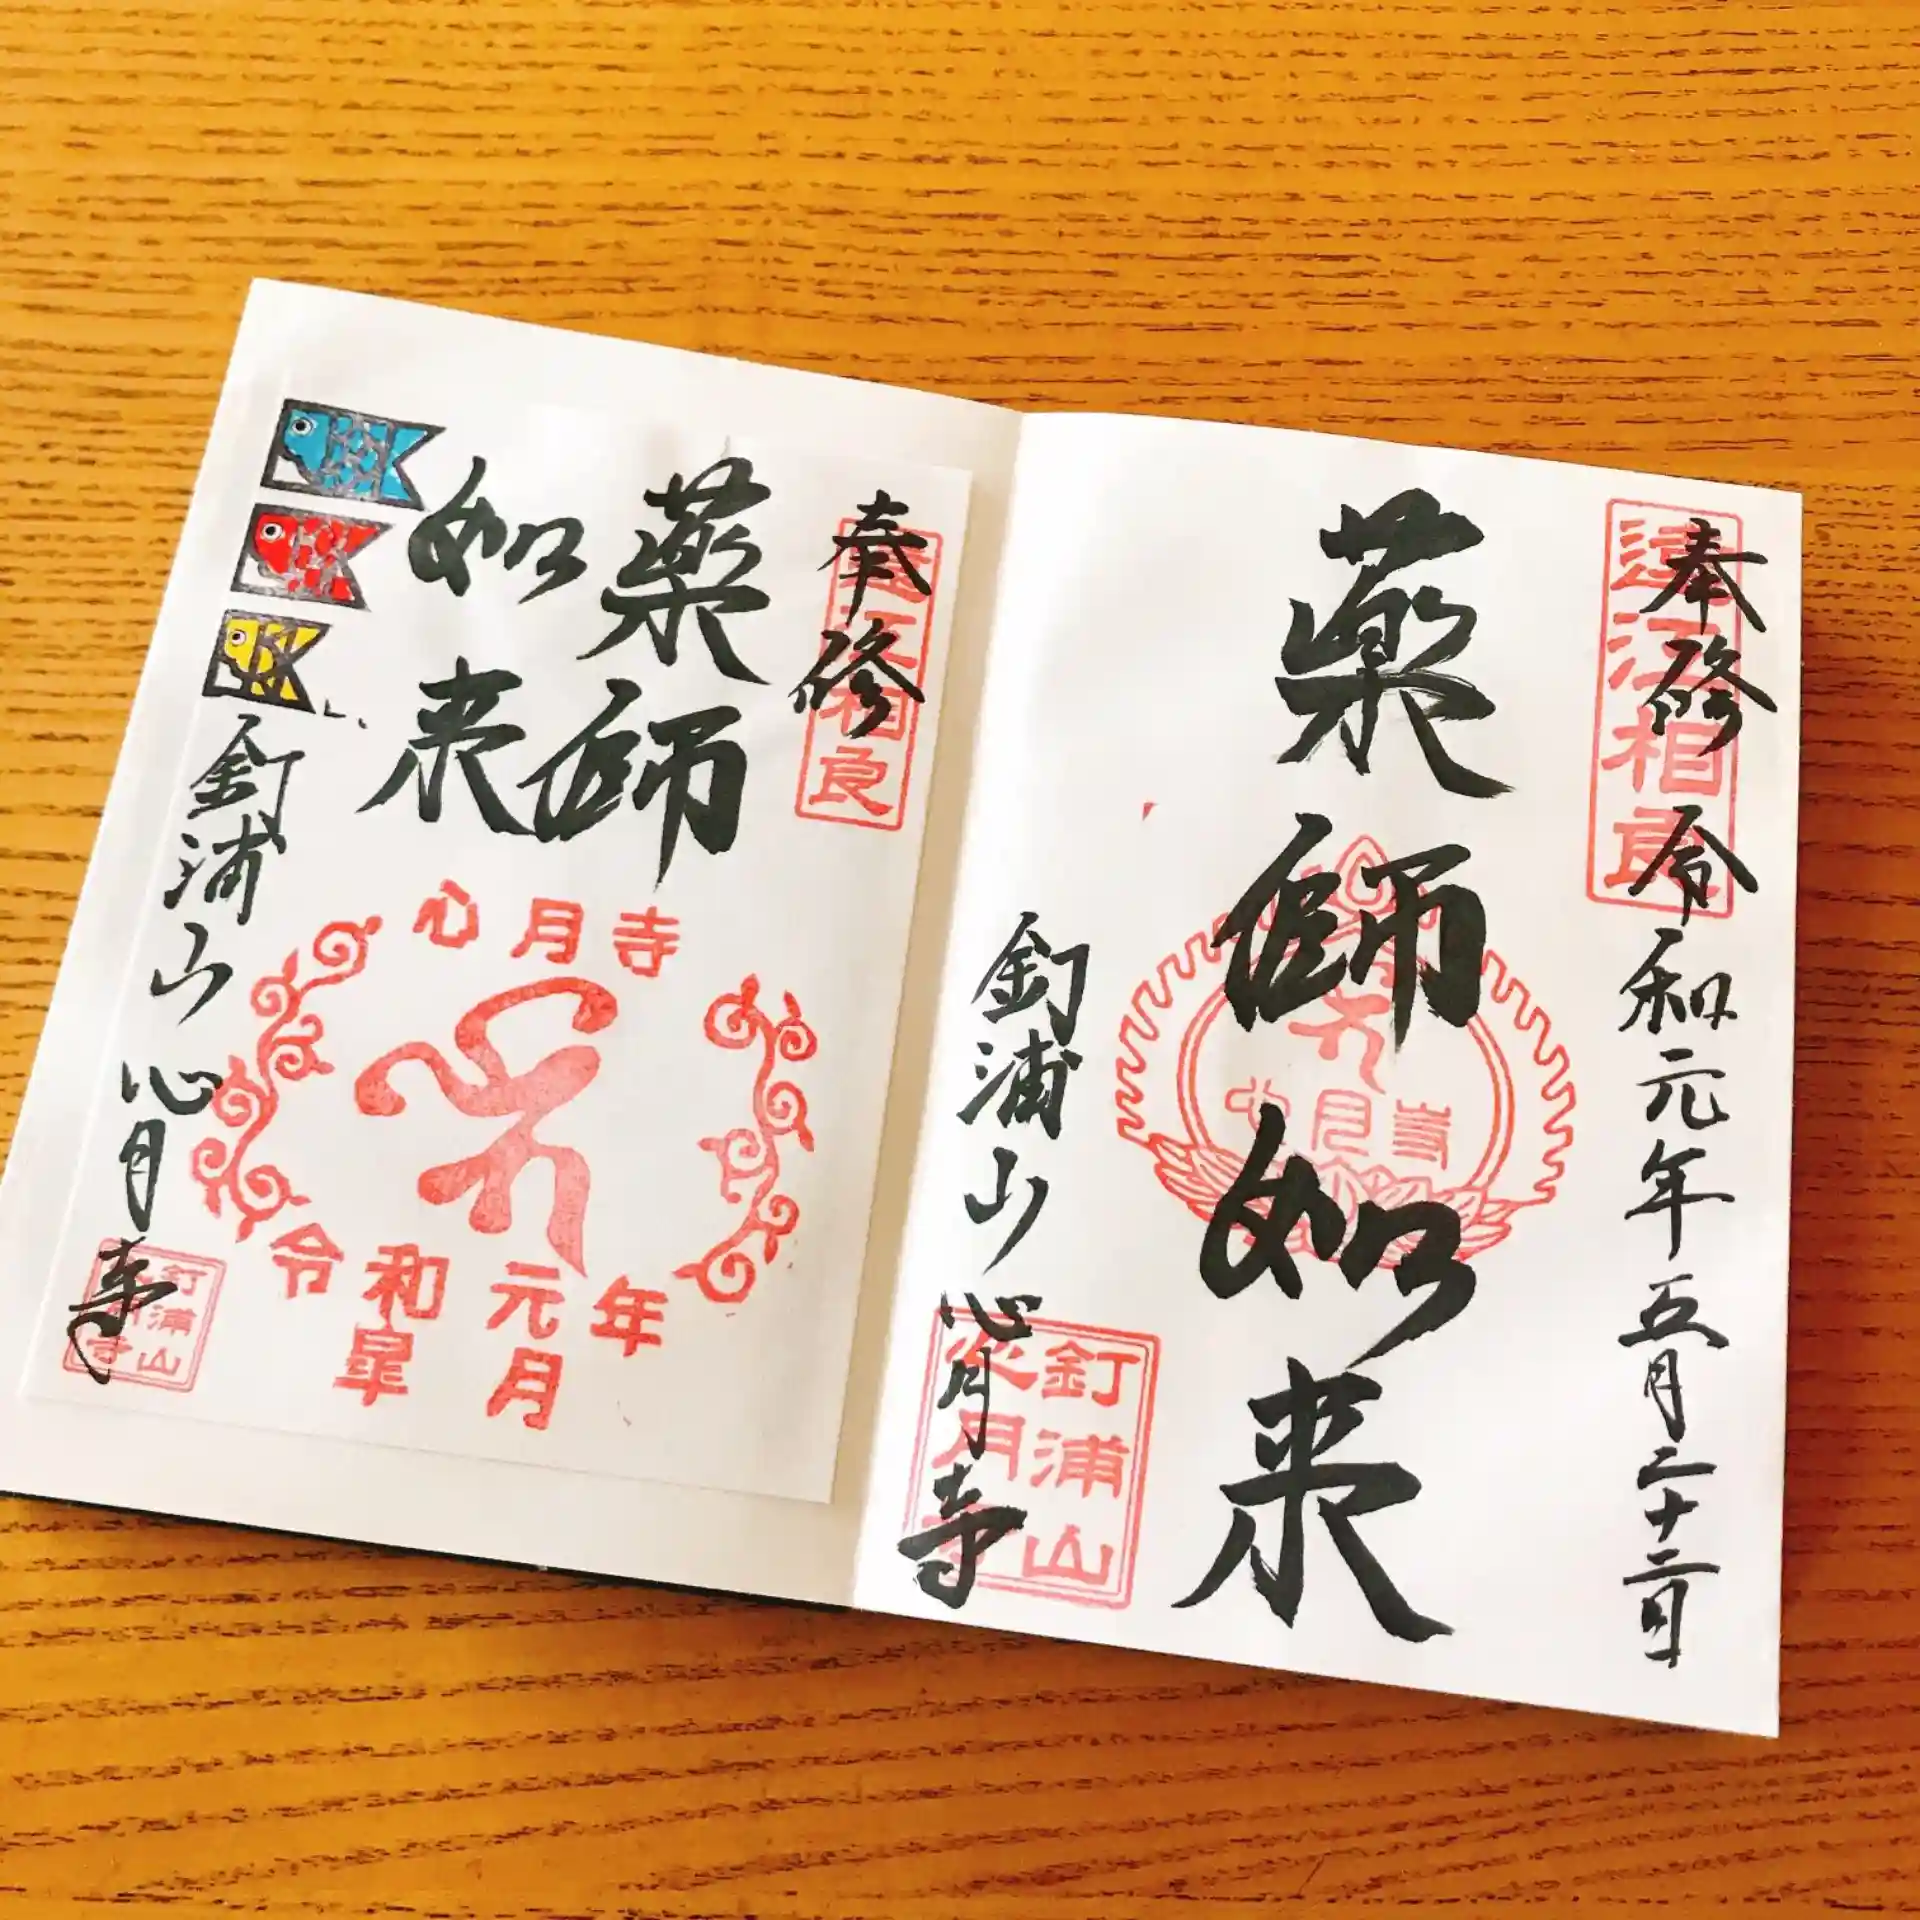 奉修 令和元年五月二十二日
遠江相良
薬師如来
心月寺
釘浦山 心月寺
釘浦山
心月寺
奉修
遠江相良
薬師
如来
心月寺
令和元年
皐月
釘浦山 心月寺
釘浦山
心月寺